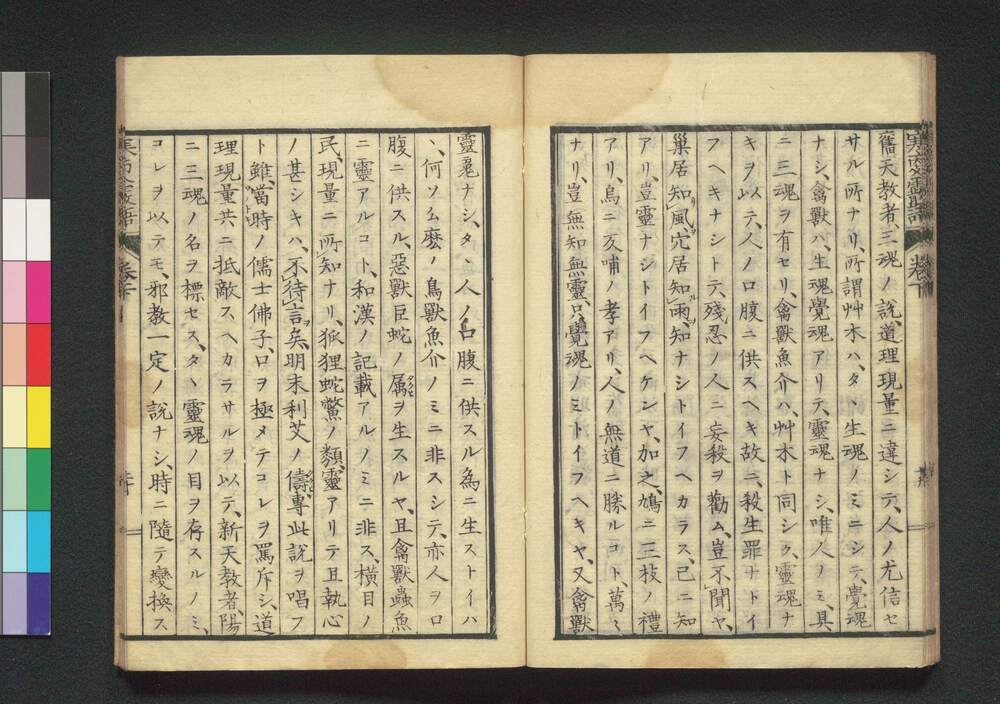 舊天教者、三魂ノ説、道理現量ニ違シテ、人ノ尤信セ
サル所ナリ、所謂艸木ハ、タヽ生魂ノミニシテ、覺魂
ナシ、禽獸ハ、生魂覺魂アリテ、靈魂ナシ、唯人ノミ、具
ニ三魂ヲ有セリ、禽獸魚介ハ、艸木ト同シク、靈魂ナ
キヲ以テ、人ノ口腹ニ供スヘキ故ニ、殺生罪ナトイ
フヘキナシト云、残忍ノ人ニ妄殺ヲ勸ム、豈不聞ヤ、
巢居知風、穴居知雨、知ナシトイフヘカラス、已ニ知
アリ、豈靈ナシトイフヘケンヤ、加之、鳩ニ三枝ノ禮
アリ、烏ニ反哺ノ孝アリ、人ノ無道ニ勝ルコト、萬々
ナリ、豈無知無靈、只覺魂ノミトイフヘキヤ、又禽獸
靈魂ナシ、タヽ人ノ口腹ニ供スル為ニ生ストイハ
ヽ、何ソ么麽ノ鳥獸魚介ノミニ非スシテ、亦人ヲ口
腹ニ供スル、惡獸巨蛇ノ属ヲ生スルヤ、且禽獸蟲魚
ニ靈アルコト、和漢ノ記載アルノミニ非ス、横目ノ
民、現量ニ所知ナリ、狐狸蛇鱉ノ類、靈アリテ且執心
ノ甚シキハ、不待言矣、明末利艾ノ儔、專此説ヲ唱フ
ト雖、當時ノ儒士佛子、口ヲ極メテコレヲ罵斥シ、道
理現量共ニ抵敵スヘカラサルヲ以テ、新天教者、陽
ニ三魂ノ名ヲ標セス、タヽ靈魂ノ目ヲ存スルノミ、
コレヲ以テモ、邪教一定ノ説ナシ、時ニ隨テ變換ス